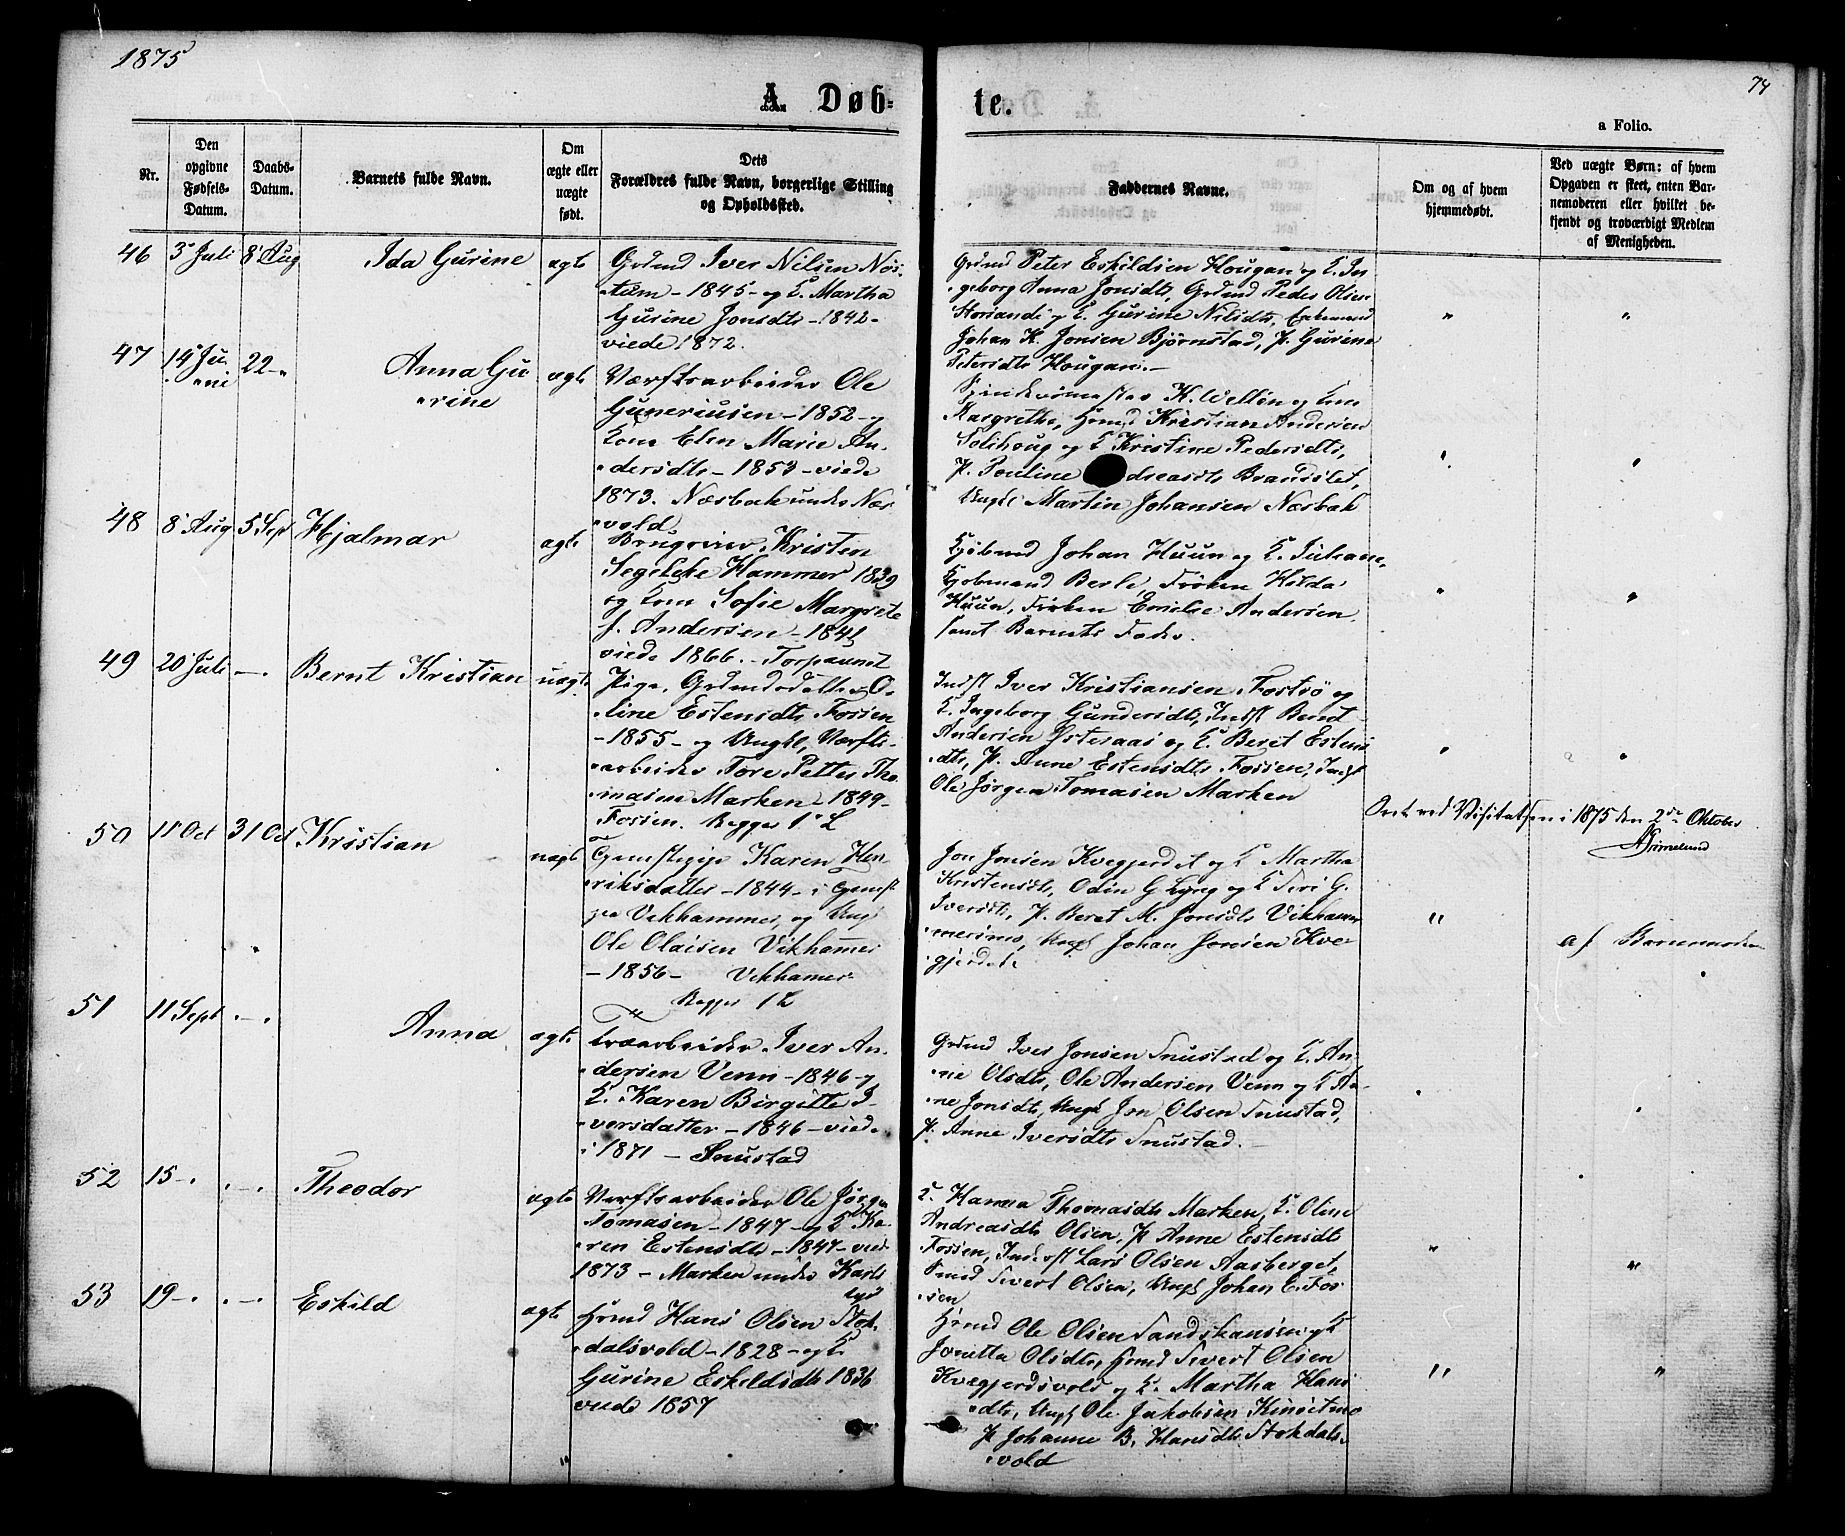 1875
74
A. Døb-
te.
a Folio.
Nr.
Den
opgivne
Fødsels-
Datum.
Daabs-
Datum.
Barnets fulde Navn.
Om
ægte eller
uægte
født.
Dets
Forældres fulde Navn, borgerlige Stilling
og Opholdssted.
Faddernes Navne.
Om og af hvem
hjemmedøbt.
Ved uægte Børn: af hvem
Opgaven er skeet, enten Bar-
nemoderen eller hvilket be-
kjendt og troværdigt Medlem
af Menigheden.
46 3 Juli 8 Aug Ida Gurine ægte
Grdmd Iver Nilsen Nøs-
tum - 1845 - og K. Martha
Gurine Jonsdtr - 1842 -
viede 1872.
Grdmd Peter Eskildsen Hougan og K. In-
geborg Anna Jonsdtr, Grdmd Peder Olsen
og K Gurine Nilsdtr,
Johan K. Jonsen Bjørnstad, P. Gurine
Petersdtr Hougan.-
47 14 Ju-
ni 22 - " Anna Gu-
rine ægte
Værftsarbeider Ole
Guneriusen - 1852 - og
Kone Elen Marie An-
dersdtr - 1853 - viede
1873. Næsbak under Næs-
vold.
K. Wellèn og Kone
Margrethe, Hsmd Kristian Andersen
Solihoug og K Kristine Pedersdtr,
P. Pouline dreasdtr Brandslet,
Ungk Martin Johansen Næsbak
48 8 Aug 5 Sept Hjalmar ægte
Kristen
Segelcke Hammer 1839
og Kone Sofie Margrete
f. Andersen - 1841
viede 1866. - Torpaunet
Kjøbmd Johan Huun og K. Juliane,
Kjøbmand Berle, Frøken Hilda
Huun, Frøken Emilie Andersen
samt Barnets Fader.
49 20 Juli - - . Bernt Kristian uægte
Pige, Grdmdsdatter O-
line Estensdtr Fossen
- 1855 - og Ungkl, Værfts-
arbeider Tore Petter Tho-
masen Marken - 1849 -
Fossen. Begges 1ste L
Indst Iver Kristiansen Fostsø og
K. Ingeborg Gundersdtr, Indst Bernt
Andersen Østeraas og K. Beret Estens-
dtr, P. Anne Estensdtr Fossen, Indst
Ole Jørgen Tomasen Marken
Seet ved Visitatsen i 1875 den 2den Oktober
Grimelund
50 11 Oct 31 Oct Kristian uægte
Tjenestepige Karen Hen-
riksdatter - 1844 - i Tjenest
paa Vikhammer, og Ungk
Ole Olaisen Vikhamer
- 1856 - Vikhamer
Begges 1 L
Jon Jonsen Kvegjerdet og K Martha
Kristensdtr, Odin G Lyng og K Siri G.
Iversdtr, P. Beret M. Jonsdtr Vikham-
Ungk Johan Jonsen Kve-
gjerdet
af Barnemoderen
51 11 Sept - - . Anna ægte
Træarbeider Iver An-
dersen Venn - 1846 - og
K. Karen Birgitte I-
versdatter - 1846 - viede
i 1871 - Snustad
Grdmd Iver Jonsen Snustad og K. An-
ne Olsdtr, Ole Andersen Venn og K An-
ne Jonsdtr, Ungk Jon Olsen Snustad,
P. Anne Iversdtr Snustad.
52 15 - . - - . Theodor ægte
Værftsarbeider Ole Jørgen
Tomasen - 1847 - og K Ka-
ren Estensdtr - 1847 - viede
1873 - Marken under Karls-
lyd
K. Hanna Thomasdtr Marken, K Oline
Andreasdtr Olsen, P Anne Estensdtr
Fossen, Inderst Lars Olsen Aasberget,
Smed Sivert Olsen, Ungk Johan E. Fos-
sen
53 19 - . - - . Eskild ægte
Hsmd Hans Olsen Stok-
dalsvold - 1828 - og K
Gurine Eskildsdtr 1836
viede 1857
Hsmd Ole Olsen Sandskansen og K
Jonetta Olsdtr, Hsmd Sivert Olsen
Kvegjerdsvold og K. Martha Hans-
dtr, Ungk Ole Jakobsen Kinsetmo
P Johanne B. Hansdtr Stokdals-
vold